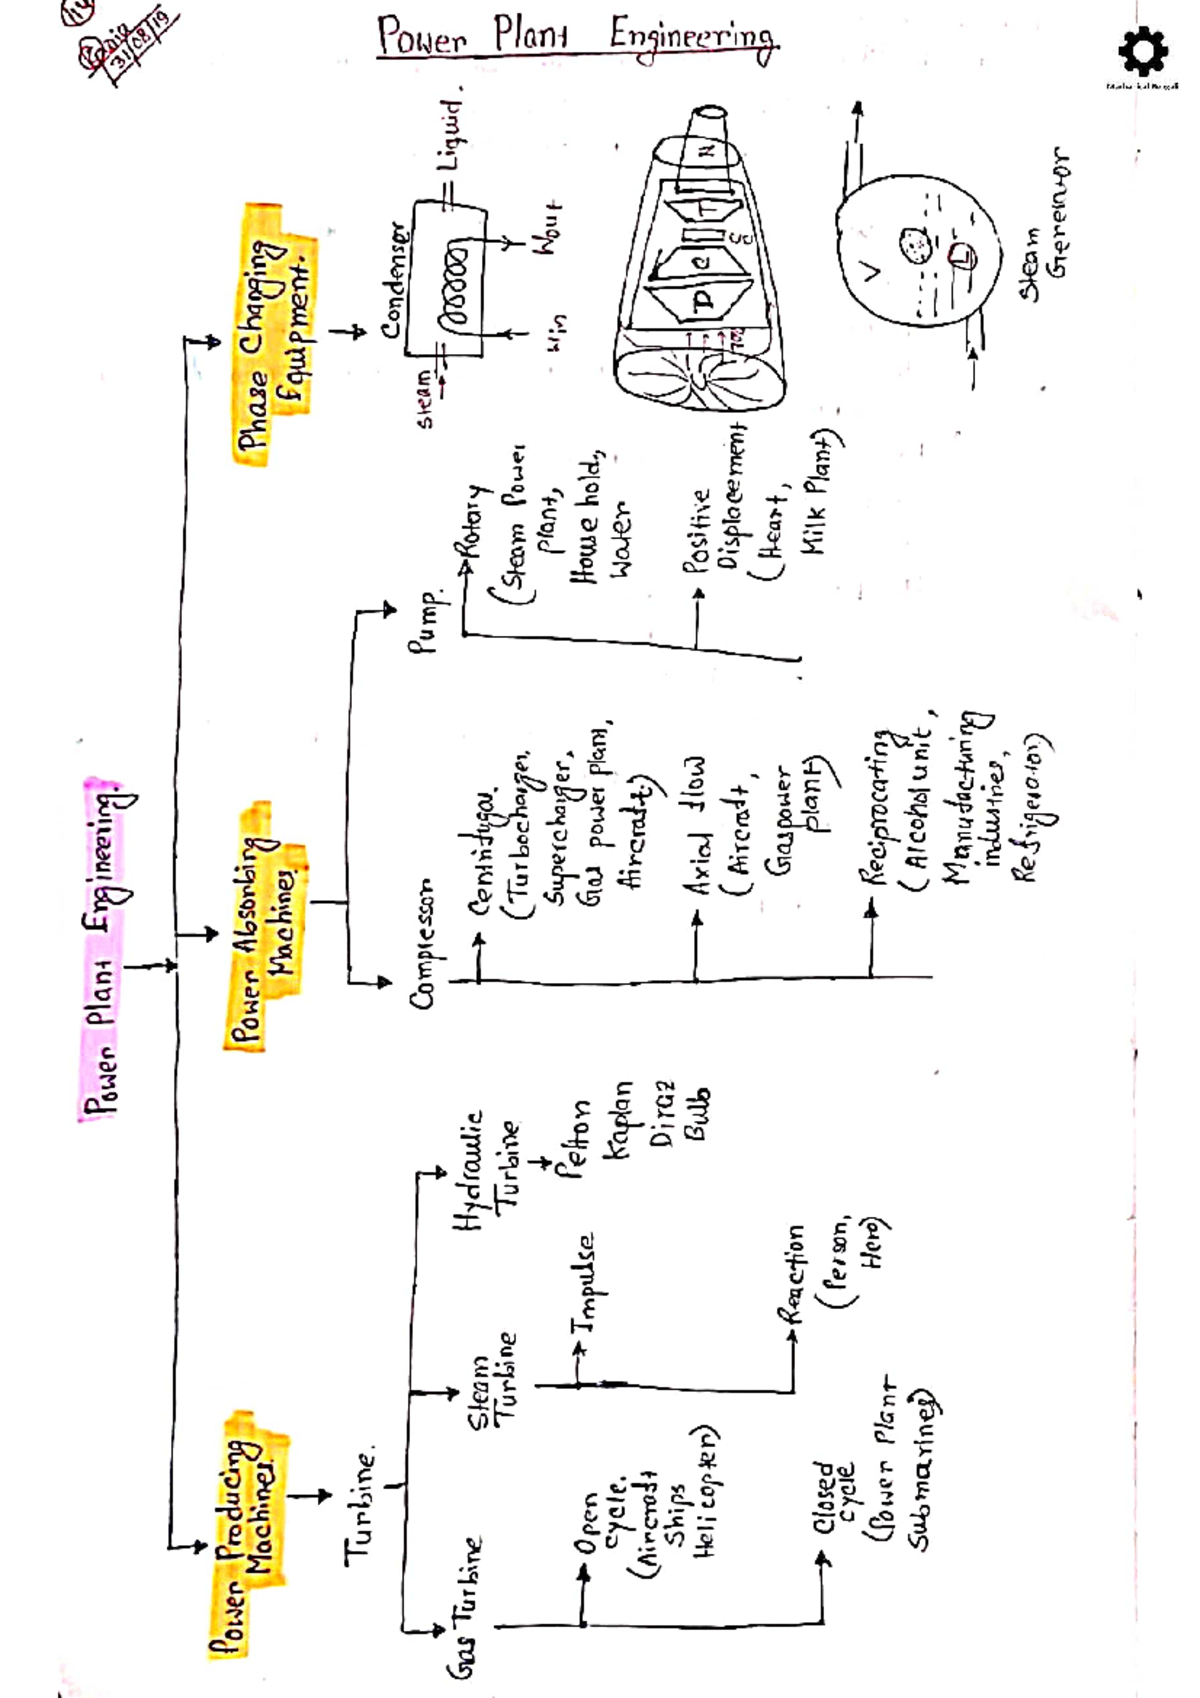 31/08/19
Power Plant Engineering
Power Plant Engineering.
Power Producing
Machines.
Turbine.
Gas Turbine
Open
cycle.
(Aircraft
Ships
Helicopter)
Closed
cycle
(Power Plant
Submarines)
Steam
Turbine
Impulse
Reaction
(Person,
Hero)
Hydraulic
Turbine
Pelton
Kaplan
Diraz
Bulb
Power Absorbing
Machines.
Compressor
Centrifugal.
(Turbocharger,
Supercharger,
Gas power plant,
Aircraft)
Axial flow
(Aircraft,
Gaspower
plant)
Reciprocating
(Alcohol unit,
Manufacturing
industries,
Refrigerator)
Pump.
Rotary
(Steam Power
plant,
House hold,
Water
Positive
Displacement
(Heart,
Milk Plant)
Phase Changing
Equipment.
Condensor
Steam
Liquid.
Win
Wout
D
C
CC
T
N
V
L
Steam
Generator